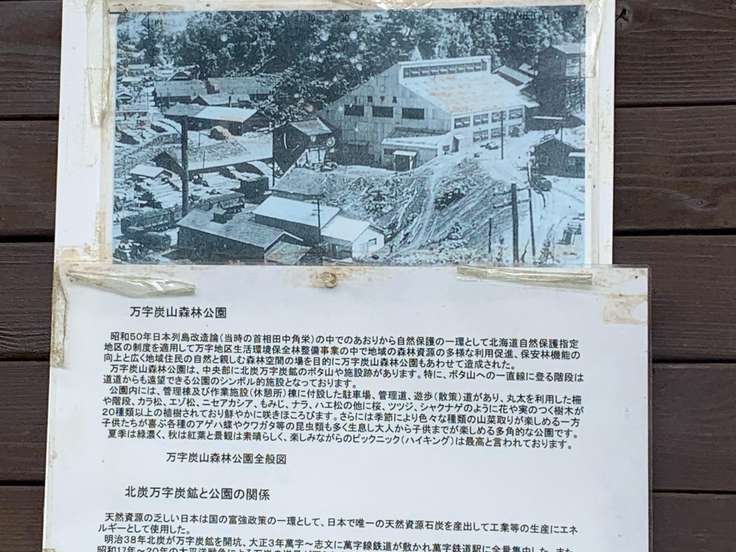 万字炭山森林公園
昭和50年日本列島改造論(当時の首相田中角栄)の中でのあおりから自然保護の一環として北海道自然保護指定
地区の制度を適用して万字地区生活環境保全林整備事業の中で地域の森林資源の多様な利用促進、保安林機能の
向上と広く地域住民の自然と親しむ森林空間の場を目的に万字炭山森林公園もあわせて造成された。
万字炭山森林公園は、中央部に北炭万字炭鉱のボタ山や施設跡があります。特に、ボタ山への一直線に登る階段は
道道からも遠望できる公園のシンボル的施設となっております。
公園内には、管理棟及び作業施設(休憩所)棟に付した駐車場、管理道、遊歩(散策)道があり、丸太を利用した柵
や階段、カラ松、エゾ松、ニセアカシア、もみじ、ナラ、ハエ松の他に桜、ツツジ、シャクナゲのように花や実のつく樹木が
20種類以上の植樹されており鮮やかに咲きほころびます。さらには季節により色々な種類の山菜取りが楽しめる一方
子供たちが喜ぶ各種のアゲハ蝶やクワガタ等の昆虫類も多く生息し大人から子供までが楽しめる多角的な公園です。
夏季は緑濃く、秋は紅葉と景観は素晴らしく、楽しみながらのピックニック(ハイキング)は最高と言われております。
万字炭山森林公園全般図
北炭万字炭鉱と公園の関係
天然資源の乏しい日本は国の富強政策の一環として、日本で唯一の天然資源石炭を産出して工業等の生産にエネ
ルギーとして使用した。
明治38年北炭が万字炭鉱を開坑、大正3年萬字〜志文に萬字線鉄道が敷かれ萬字鉄道駅に全量集中した。